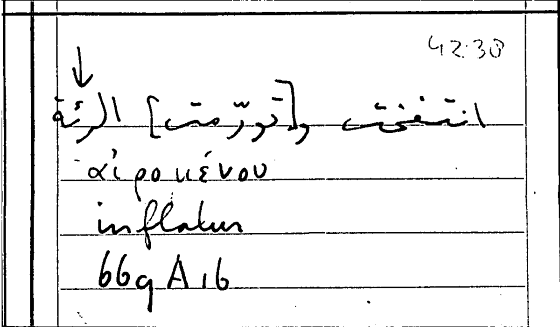 42:30
انتفخت و[تورّمت] الرئة
αἰρομένου
inflatur
669 A 16